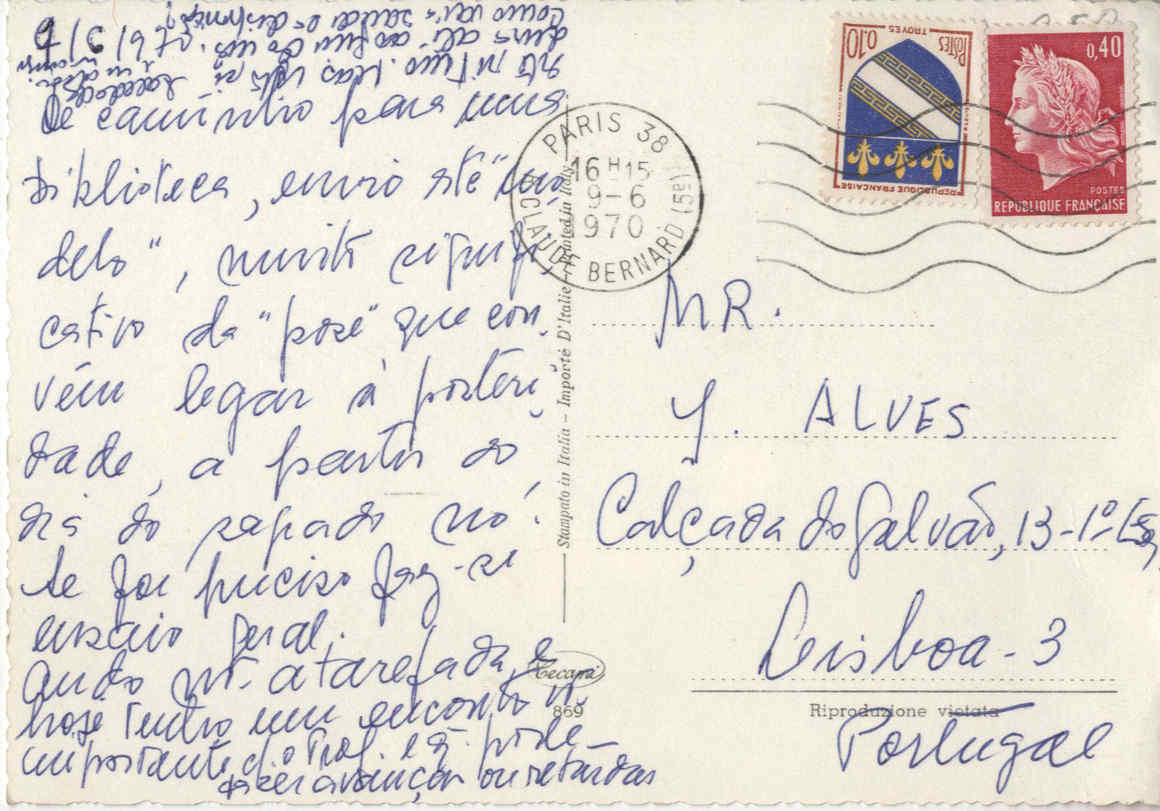 De caminho para uma
biblioteca, envio este "mo
delo", muito signifi
cativo da "pose" que con,
vém legar à posteri
dade, a partir do
dia do sapado nó.
Se for preciso faz-se
ensaio geral.
Ando mt. atarefada, e
hoje tenho um encontro m
importante c/ o Prof. e q. pode
fazer avançar ou retardar
PARIS 38
16 H 15
9-6
1970
CLAUDE BERNARD (5e)
POSTES
0,10
TROYES
REPUBLIQUE FRANÇAISE
0,40
POSTES
REPUBLIQUE FRANÇAISE
Stampato in Italia – Importé D'Italie – Printed in Italy
MR.
Y. ALVES
Calçada do Galvão, 13-1º Esq.
Lisboa - 3
Portugal
Tecapa
869
Riproduzione vietata